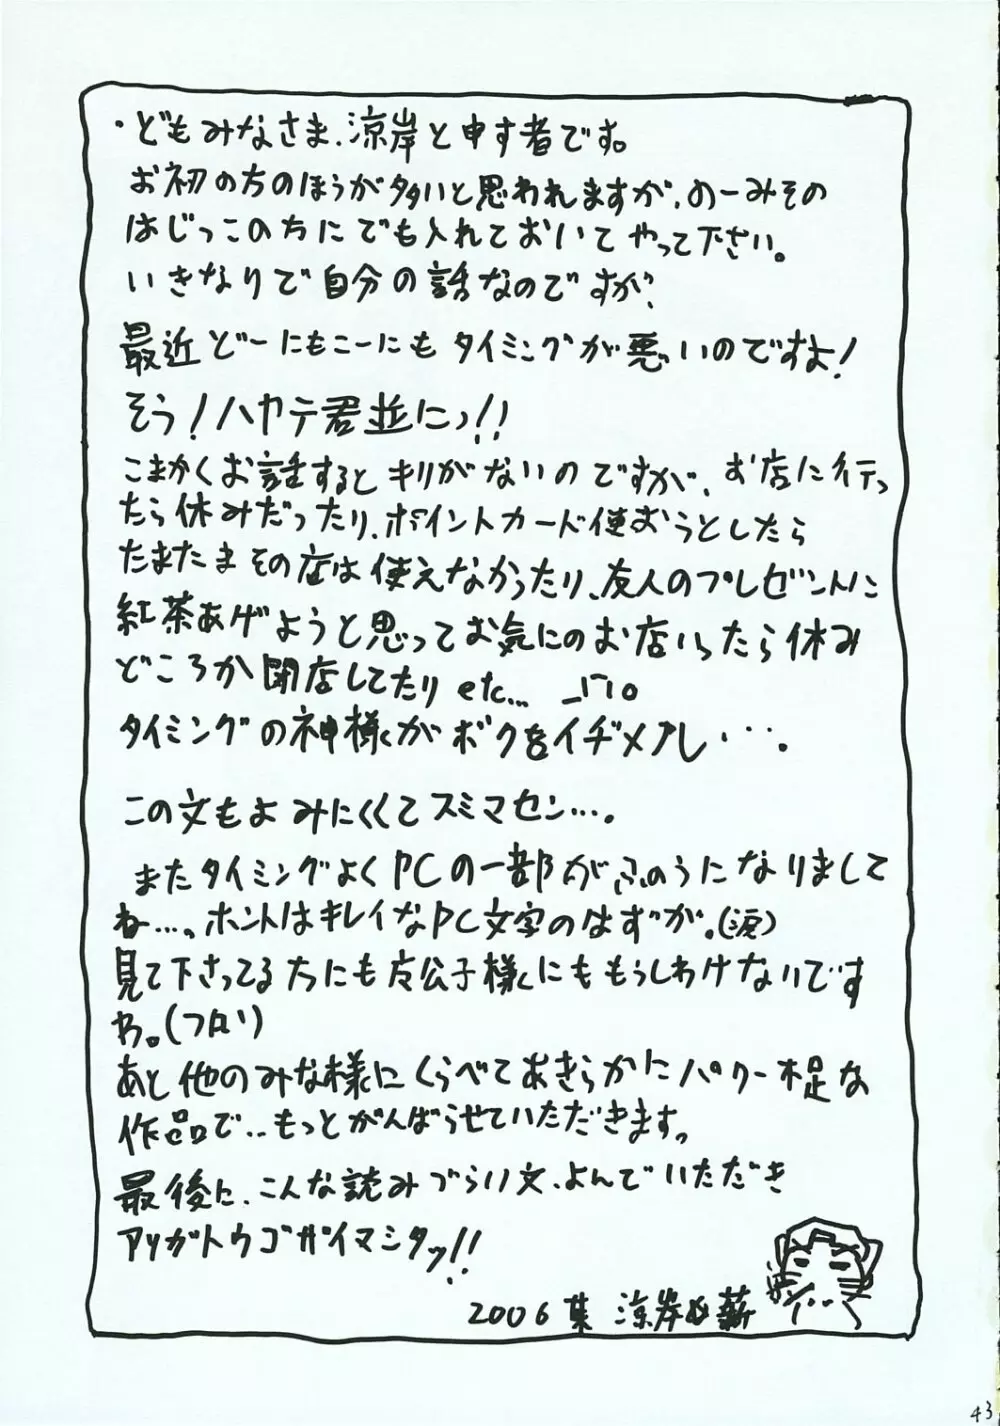 ・どもみなさま、涼岸と申す者です。
お初の方のほうが多いと思われますが、のーみその
はじっこの方にでも入れておいてやって下さい。
いきなりで自分の話なのですが?
最近どーにもこーにもタイミングが悪いのですよ!
そう!ハヤテ君並にっ!!
こまかくお話するとキリがないのですが、お店に行っ
たら休みだったり、ポイントカード使おうとしたら
たまたまその店は使えなかったり、友人のプレゼントに
紅茶あげようと思ってお気にのお店いったら休み
どころか閉店してたり etc... _| ̄|○
タイミングの神様がボクをイヂメル・・・。
この文もよみにくくてスミマセン…。
またタイミングよくPCの一部がふのうになりまして
ね…。ホントはキレイなPC文字のはずが。(涙)
見て下さってる方にも友公子様にももうしわけないです
わ。(フロい)
あと他のみな様にくらべてあきらかにパワー不足な
作品で..もっとがんばらせていただきます。
最後に、こんな読みづらい文、よんでいただき
アリガトウゴザイマシタッ!!
2006 葉 涼岸 薪
43